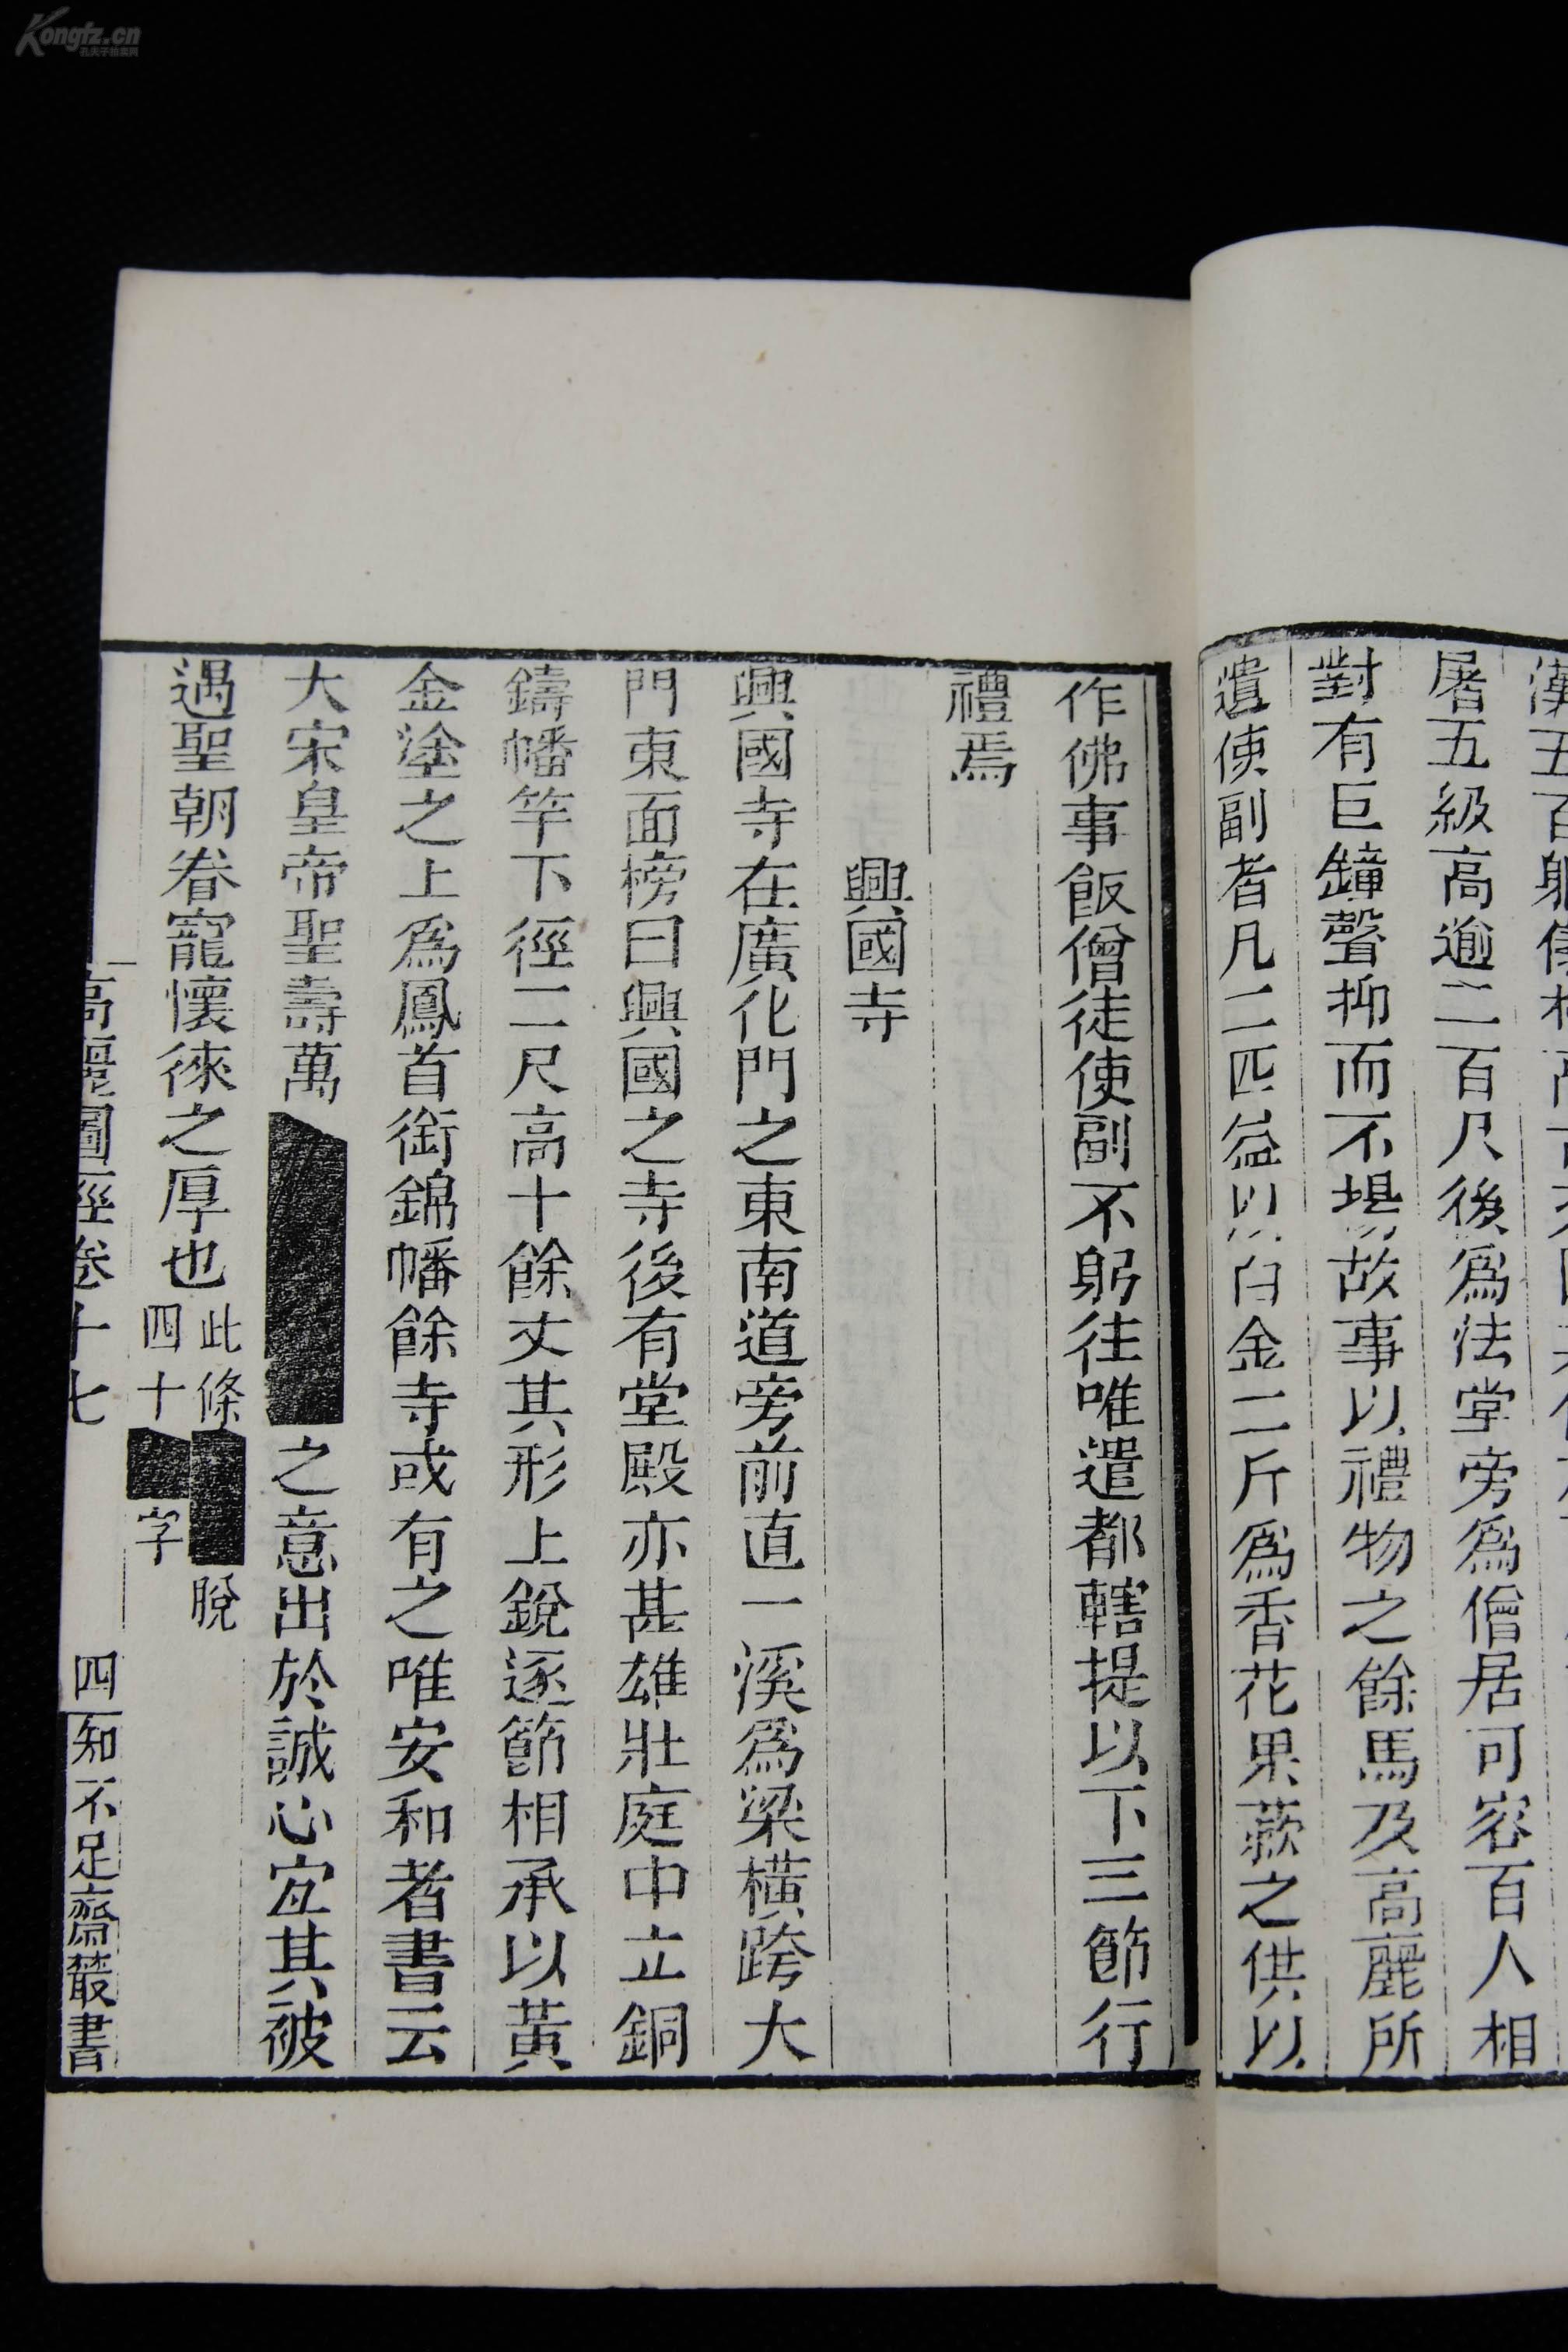 屠五級高逾二百尺後爲法堂旁爲僧居可容百人相
對有巨鐘聲抑而不揚故事以禮物之餘馬及高麗所
遣使副者凡二匹益以白金二斤爲香花果蔌之供以
作佛事飯僧徒使副不躬往唯遣都轄提以下三節行
禮焉
興國寺
興國寺在廣化門之東南道旁前直一溪爲梁橫跨大
門東面榜曰興國之寺後有堂殿亦甚雄壯庭中立銅
鑄幡竿下徑二尺高十餘丈其形上銳逐節相承以黃
金塗之上爲鳳首銜錦幡餘寺或有之唯安和者書云
大宋皇帝聖壽萬之意出於誠心宜其被
遇聖朝眷寵懷徠之厚也此條脫
四十字
高麗圖經卷十七
四
知不足齋叢書
Kongfz.cn